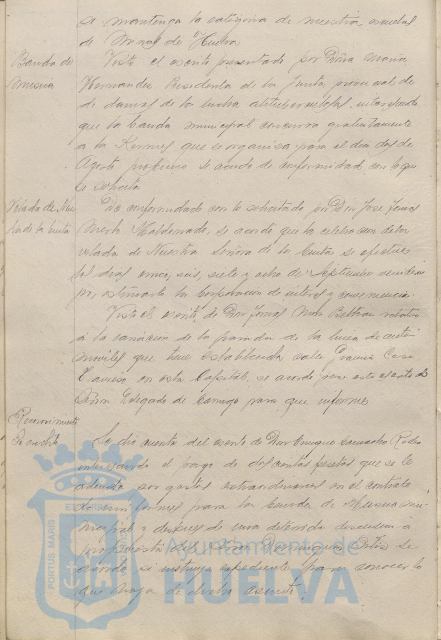 se mantenga la categoria de nuestra
de Minas de Huelva.
Banda de
música
Visto el escrito presentado por Doña Maria
Hernandez Presidenta de la Junta provincial de
de damas de la lucha antituberculosa, interesando
que la banda municipal concurra gratuitamente
a la Kermes que se organiza para el dia dos de
Agosto proximo se acordo de conformidad con lo que
se solicita.
Velada de Nra
Sra de la Cinta
De conformidad con lo solicitado por Don José Tomas
Maldonado, se acordó que la celebracion de la
velada de Nuestra Señora de la Cinta se efectue
los dias cinco, seis, siete y ocho de Septiembre
por estimarlo la Corporacion de interes y conveniencia.
Visto el escrito de Don Tomas Beltran relativo
a la variacion de la parada de la linea de auto-
moviles que tiene establecida entre
en esta Capital, se acordó pase este escrito al
Señor Delegado de para que informe.
Reconocimiento
de credito
Se dio cuenta del escrito de Don Enrique Camacho
interesando el pago de doscientas pesetas que se le
adeuda por gastos extraordinarios en el contrato
de uniformes para la banda de Musica mu-
nicipal y despues de una detenida discusion a
propuesta del Señor Dominguez Ortiz se
acordó se instruya expediente para conocer lo
que haya de dicho asunto.
PORTUS MARIS
Ayuntamiento de
HUELVA